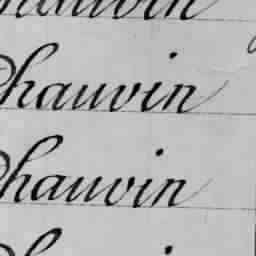 hauvin
Chauvin
Chauvin